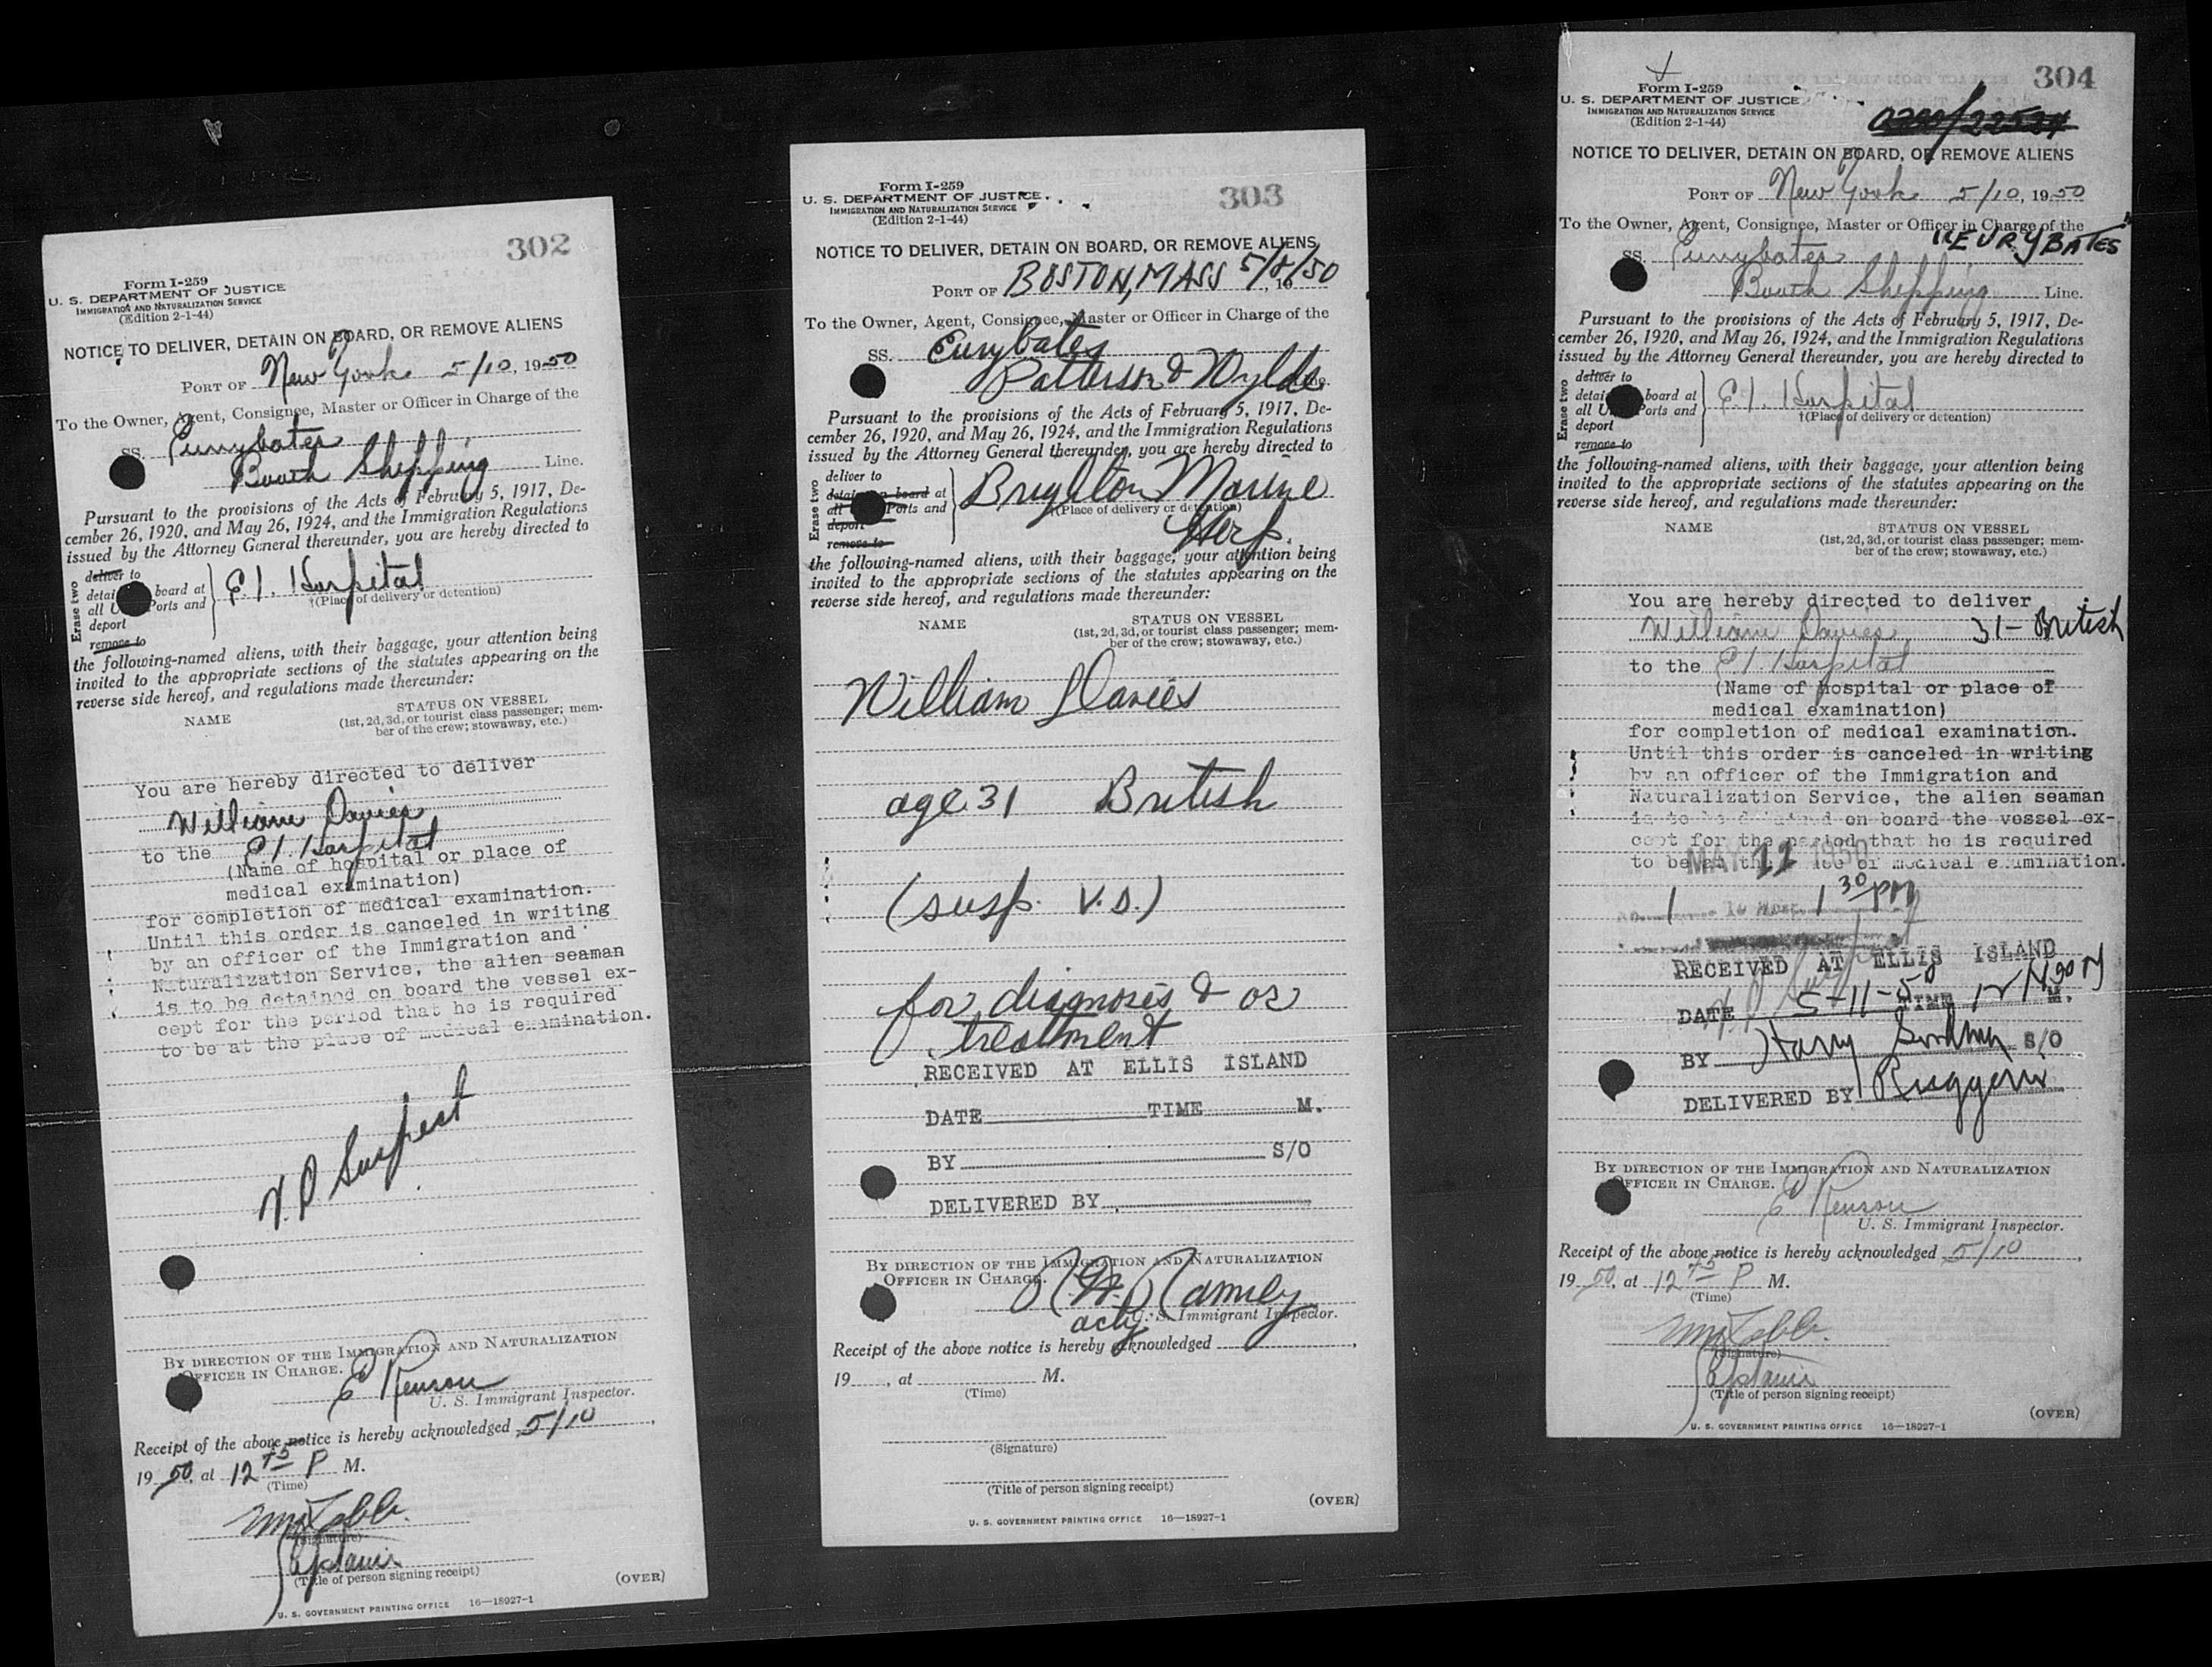 302
Form I-259
U. S. DEPARTMENT OF JUSTICE
IMMIGRATION AND NATURALIZATION SERVICE
(Edition 2-1-44)
NOTICE TO DELIVER, DETAIN ON BOARD, OR REMOVE ALIENS
PORT OF New York 5/10, 1950
To the Owner, Agent, Consignee, Master or Officer in Charge of the
SS. Eurybates
Booth Shipping Line.
Pursuant to the provisions of the Acts of February 5, 1917, De-
cember 26, 1920, and May 26, 1924, and the Immigration Regulations
issued by the Attorney General thereunder, you are hereby directed to
Erase two
deliver to
detai board at
all U Ports and
deport
remove to
E I. Hospital
†(Place of delivery or detention)
the following-named aliens, with their baggage, your attention being
invited to the appropriate sections of the statutes appearing on the
reverse side hereof, and regulations made thereunder:
NAME STATUS ON VESSEL
(1st, 2d, 3d, or tourist class passenger; mem-
ber of the crew; stowaway, etc.)
You are hereby directed to deliver
William Davies
to the E I. Hospital
(Name of hospital or place of
medical examination)
for completion of medical examination.
Until this order is canceled in writing
by an officer of the Immigration and
Naturalization Service, the alien seaman
is to be detained on board the vessel ex-
cept for the period that he is required
to be at the place of medical examination.
V. D Suspect
BY DIRECTION OF THE IMMIGRATION AND NATURALIZATION
OFFICER IN CHARGE.
E Renson
U. S. Immigrant Inspector.
Receipt of the above notice is hereby acknowledged 5/10,
19 50, at 12 45 P M.
(Time)
(Signature)
(Title of person signing receipt)
(OVER)
U. S. GOVERNMENT PRINTING OFFICE 16—18927-1
303
Form I-259
U. S. DEPARTMENT OF JUSTICE
IMMIGRATION AND NATURALIZATION SERVICE
(Edition 2-1-44)
NOTICE TO DELIVER, DETAIN ON BOARD, OR REMOVE ALIENS
PORT OF BOSTON, MASS 5/8/50
To the Owner, Agent, Consignee, Master or Officer in Charge of the
SS. Eurybates
Patterson & Wylde
Pursuant to the provisions of the Acts of February 5, 1917, De-
cember 26, 1920, and May 26, 1924, and the Immigration Regulations
issued by the Attorney General thereunder, you are hereby directed to
Erase two
deliver to
detain on board at
all Ports and
deport
remove to
Brighton Marine
Hosp.
†(Place of delivery or detention)
the following-named aliens, with their baggage, your attention being
invited to the appropriate sections of the statutes appearing on the
reverse side hereof, and regulations made thereunder:
NAME STATUS ON VESSEL
(1st, 2d, 3d, or tourist class passenger; mem-
ber of the crew; stowaway, etc.)
William Davies
age 31 British
(susp. V.D.)
for diagnosis & or
treatment
RECEIVED AT ELLIS ISLAND
DATE TIME M.
BY S/O
DELIVERED BY
BY DIRECTION OF THE IMMIGRATION AND NATURALIZATION
OFFICER IN CHARGE.
actg. U. S. Immigrant Inspector.
Receipt of the above notice is hereby acknowledged ,
19 , at M.
(Time)
(Signature)
(Title of person signing receipt)
(OVER)
U. S. GOVERNMENT PRINTING OFFICE 16—18927-1
304
Form I-259
U. S. DEPARTMENT OF JUSTICE
IMMIGRATION AND NATURALIZATION SERVICE
(Edition 2-1-44)
NOTICE TO DELIVER, DETAIN ON BOARD, OR REMOVE ALIENS
PORT OF New York 5/10, 1950
To the Owner, Agent, Consignee, Master or Officer in Charge of the
SS. Eurybates "EURYBATES"
Booth Shipping Line.
Pursuant to the provisions of the Acts of February 5, 1917, De-
cember 26, 1920, and May 26, 1924, and the Immigration Regulations
issued by the Attorney General thereunder, you are hereby directed to
Erase two
deliver to
detai board at
all U Ports and
deport
remove to
E I. Hospital
†(Place of delivery or detention)
the following-named aliens, with their baggage, your attention being
invited to the appropriate sections of the statutes appearing on the
reverse side hereof, and regulations made thereunder:
NAME STATUS ON VESSEL
(1st, 2d, 3d, or tourist class passenger; mem-
ber of the crew; stowaway, etc.)
You are hereby directed to deliver
William Davies 31- British
to the E I. Hospital
(Name of hospital or place of
medical examination)
for completion of medical examination.
Until this order is canceled in writing
by an officer of the Immigration and
Naturalization Service, the alien seaman
is to be detained on board the vessel ex-
cept for the period that he is required
to be at the place of medical examination.
MAY 11 1950
1 1 30 PM
RECEIVED AT ELLIS ISLAND
DATE 5-11-50 TIME M.
BY Harry S/O
DELIVERED BY
BY DIRECTION OF THE IMMIGRATION AND NATURALIZATION
OFFICER IN CHARGE.
E Renson
U. S. Immigrant Inspector.
Receipt of the above notice is hereby acknowledged 5/10,
19 50, at 12 45 P M.
(Time)
(Signature)
(Title of person signing receipt)
(OVER)
U. S. GOVERNMENT PRINTING OFFICE 16—18927-1